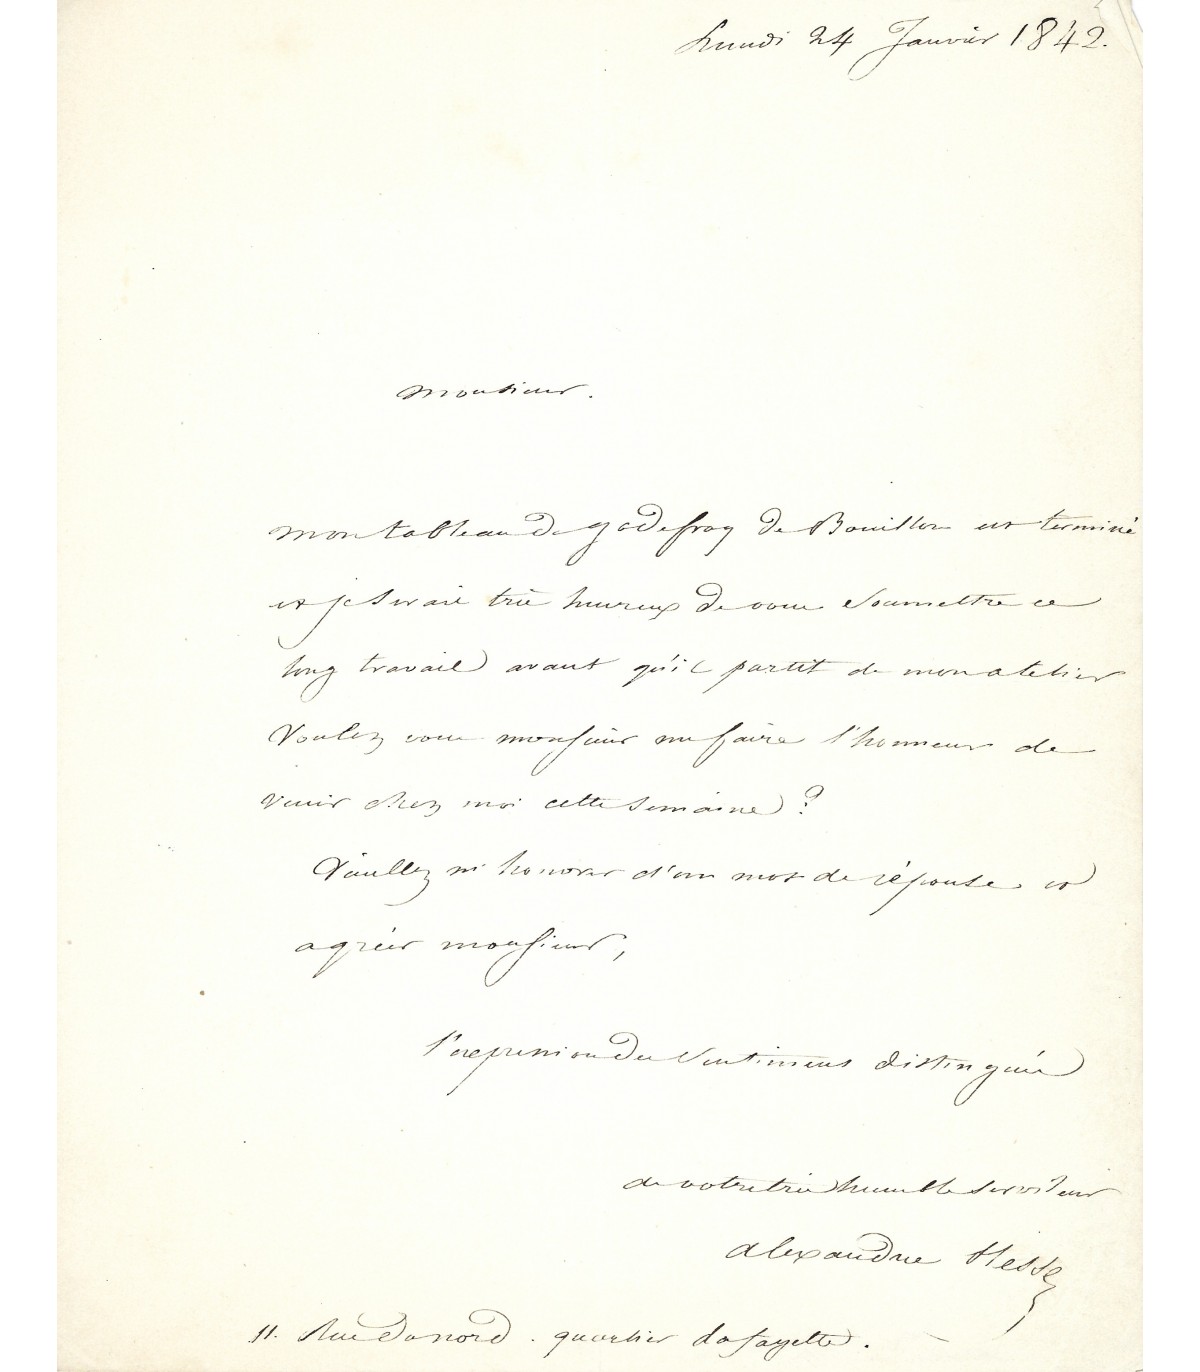 Lundi 24 Janvier 1842.
Monsieur.
mon tableau de godefroy de Bouillon est terminé
et je serais très heureux de vous soumettre ce
long travail avant qu'il partit de mon atelier
Voulez vous monsieur me faire l'honneur de
venir chez moi cette semaine ?
Veuillez m'honorer d'un mot de réponse et
agréer monsieur,
l'expression des sentiments distingués
de votre très humble serviteur
alexandre Hesse
11. Rue du nord . quartier Lafayette .